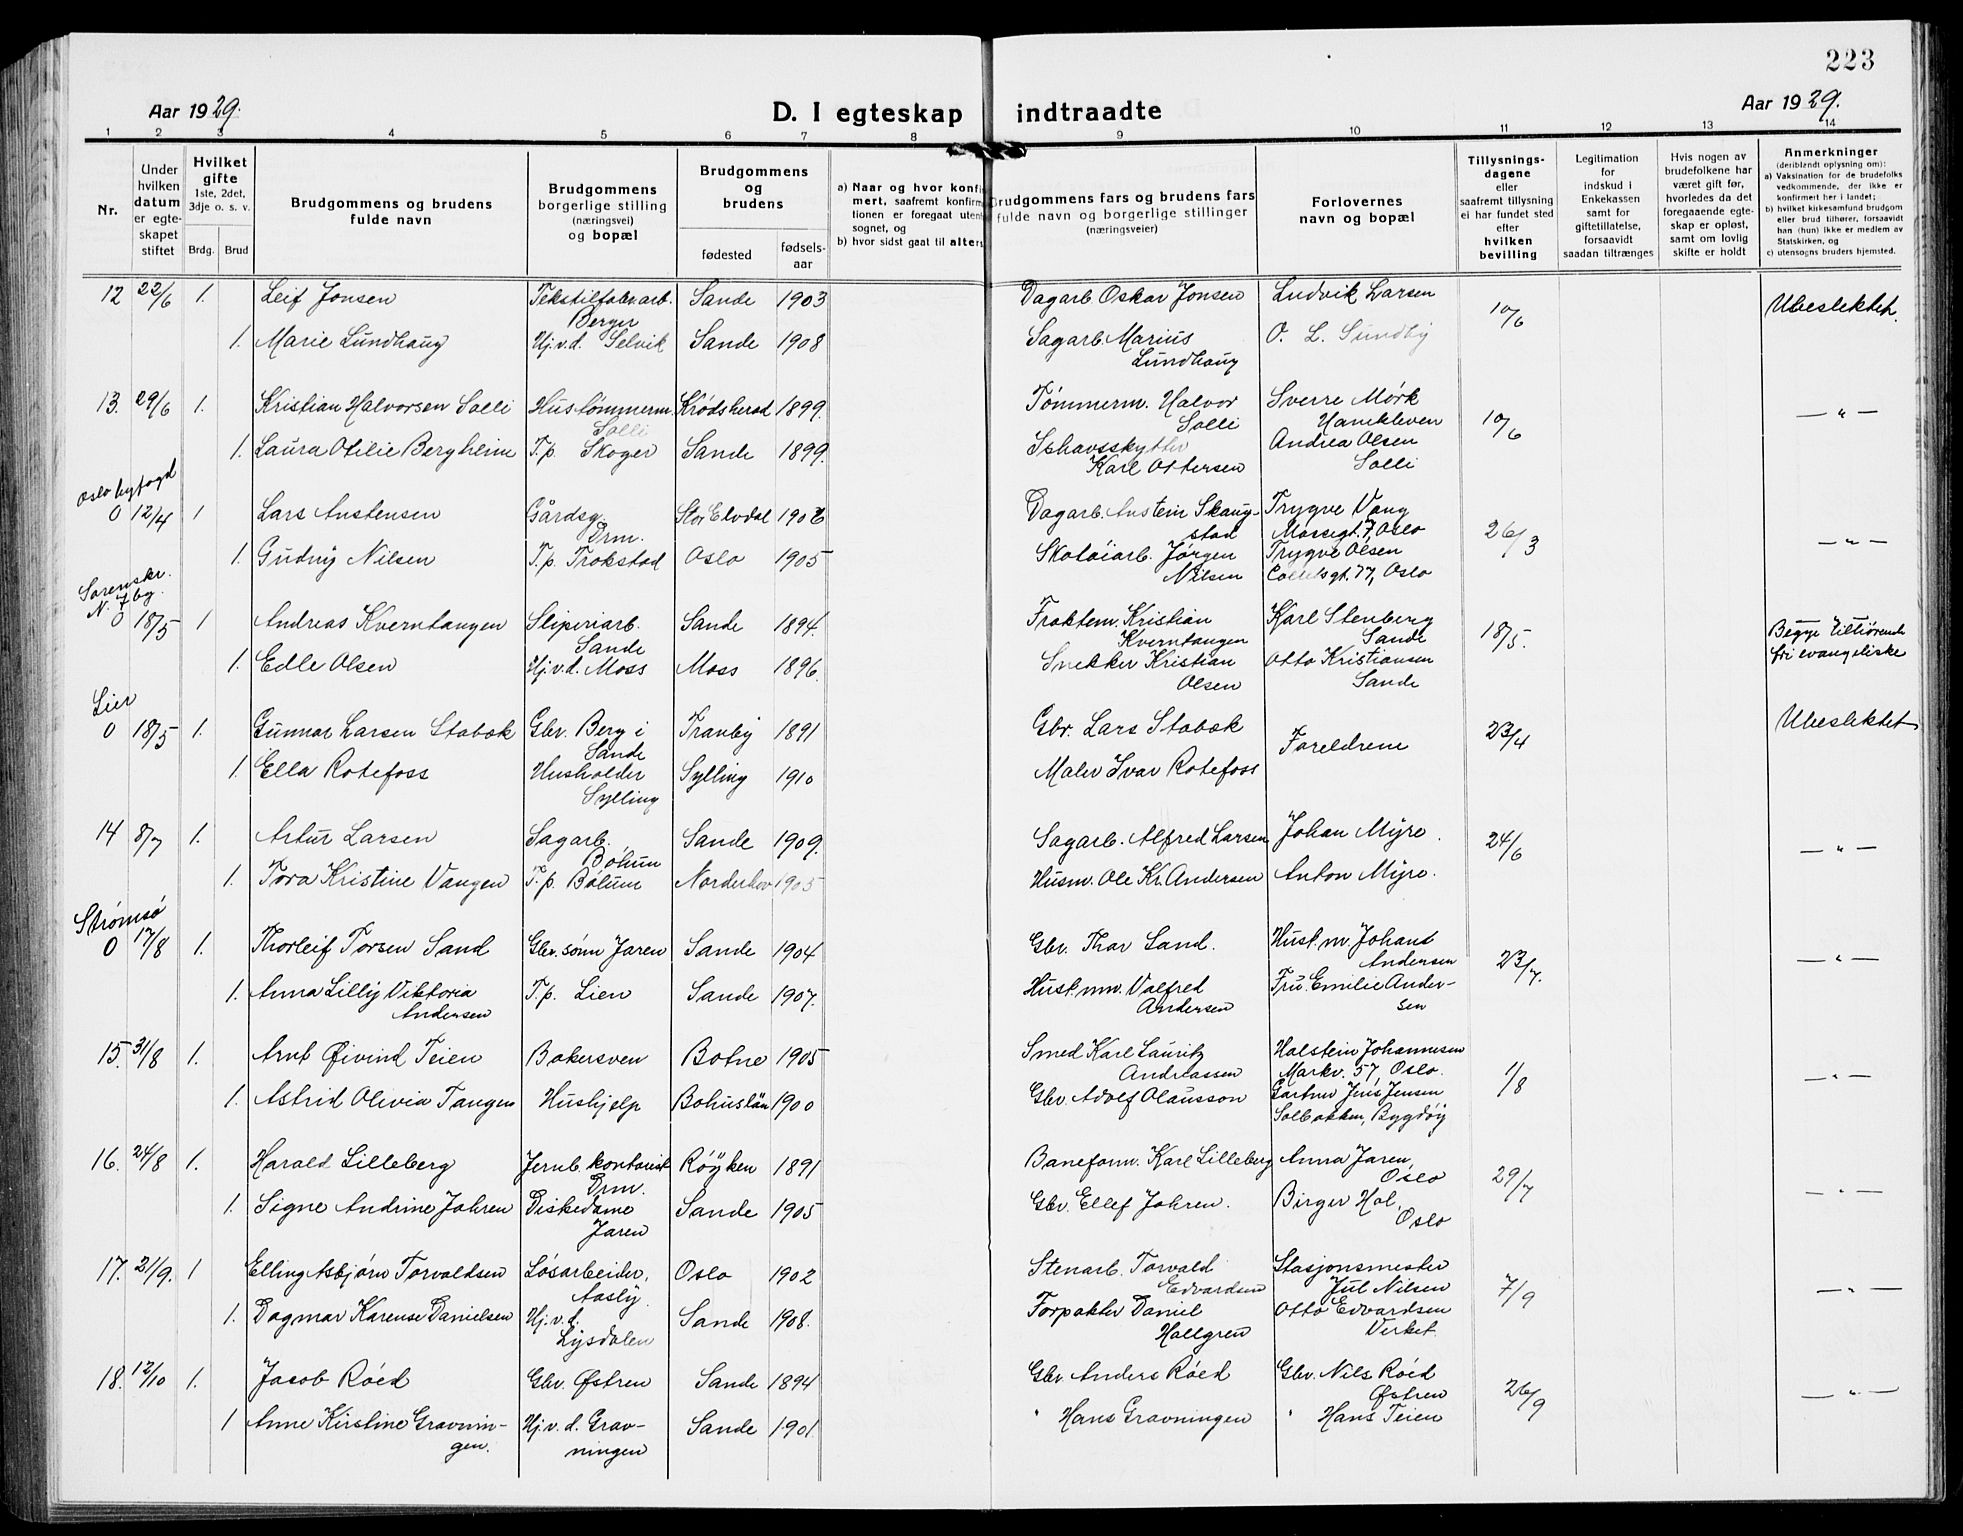 223
Aar 1929.
D. I egteskap indtraadte
Aar 1929.
1 2 3 4 5 6 7 8 9 10 11 12 13 14
Nr.
Under hvilken datum er egteskapet stiftet
Hvilket gifte
1ste, 2det, 3dje o. s. v.
Brdg. Brud
Brudgommens og brudens fulde navn
Brudgommens borgerlige stilling (næringsvei) og bopæl
Brudgommens og brudens
fødested fødselsaar
a) Naar og hvor konfi
mert, saafremt konfirm
tionen er foregaat uten
sognet, og
b) hvor sidst gaat til alters
Brudgommens fars og brudens fars
fulde navn og borgerlige stillinger
(næringsveier)
Forlovernes
navn og bopæl
Tillysnings-
dagene
eller
saafremt tillysning
ei har fundet sted
efter
hvilken
bevilling
Legitimation
for
indskud i
Enkekassen
samt for
giftetillatelse,
forsaavidt
saadan tiltrænges
Hvis nogen av
brudefolkene har
været gift før,
hvorledes da det
foregaaende egte-
skap er opløst,
samt om lovlig
skifte er holdt
Anmerkninger
(deriblendt oplysning om):
a) Vaksination for de brudefolks
vedkommende, der ikke er
konfirmert her i landet;
b) hvilket kirkesamfund brudgom
eller brud tilhører, forsaavidt
han (hun) ikke er medlem av
Statskirken, og
c) utensogns bruders hjemsted.
12 22/6 1. Leif Jonsen Tekstilfabr.arb. Berger Sande 1903 Dagarb. Oskar Jonsen Ludvik Larsen 10/6 Ubeslektet.
1. Marie Lundhaug Hj.v.d. Selvik Sande 1908 Sagarb. Marius Lundhaug O. L. Sundby
13. 29/6 1. Kristian Halvorsen Solli Hustømmerm. Solli Krødsherad 1899. Tømmerm. Halvor Solli Sverre Mørk Hanekleven 10/6 — " —
1. Laura Otilie Bergheim T.p. Skoger Sande 1899. Ishavsskytter Karl Ottersen Andrea Olsen Solli
Oslo byfogd
0 12/4 1 Lars Austensen Gårdsg. Drm. Stor Elvdal 1906 Dagarb. Austein Skaugstad Trygve Vang Mossegt. 7, Oslo 26/3 — " —
1. Gudny Nilsen T.p. Trøkstad Oslo 1905 Skotøiarb. Jørgen Nilsen Trygve Olsen Colletsgt. 77, Oslo
Sorenskr.
N. Jbg.
0 18/5 1 Andreas Kverntangen Sliperiarb. Sande Sande 1894. Fraktem. Kristian Kverntangen Karl Stenberg Sande 18/5. Begge tilhørende fri evangeliske
1. Edle Olsen Hj.v.d. Moss Moss 1896. Snekker Kristian Olsen Otto Kristiansen Sande
Lier
0 18/5 1. Gunnar Larsen Stabæk Gbr. Berg i Sande Tranby 1891 Gbr. Lars Stabæk Foreldrene 23/4 Ubeslektet
1. Ella Rotefoss Husholder Sylling Sylling 1910 Maler Ivar Rotefoss
14 8/7 1. Artur Larsen Sagarb. Bølum Sande 1909. Sagarb. Alfred Larsen Johan Myre. 24/6 — " —
1. Tora Kristine Vangen T.p. Bølum Norderhov 1905 Husm. Ole Kr. Andersen Anton Myre.
Strømsø
0 17/8 1. Thorleif Torsen Sand Gbr. sønn Jaren Sande 1904 Gbr. Thor Sand. Hust.m. Johans Andersen 23/7. — " —
1. Anna Lilly Viktoria Andersen T.p. Lien Sande 1907. Hust.mm. Valfred Andersen Fru. Emilie Andersen
15. 31/8 1. Arnt Øivind Teien Bakersven Botne 1905 Smed Karl Lauritz Andreassen Halstein Johannesen Markv. 57, Oslo. 1/8 — " —
1. Astrid Olivia Tangen Hushjelp Bohuslän 1900 Gbr. Adolf Olausson Gartner Jens Jensen Solbakken, Bygdøy
16. 24/8 1. Harald Lilleberg Jernb. kontorist Drm. Røyken 1891 Baneform. Karl Lilleberg Anna Jaren, Oslo 29/7 — " —
1. Signe Andrine Jahren Diskedame Jaren Sande 1905 Gbr. Ellef Jahren. Birger Hol, Oslo
17. 21/9. 1 Elling Asbjørn Torvaldsen Løsarbeider, Aasly Oslo 1902 Stenarb. Torvald Edvardsen Stasjonsmester Jul Nilsen 7/9 — " —
1. Dagmar Karense Danielsen Hj.v.d. Lysdalen Sande 1908. Forpakter Daniel Hallgren Otto Edvardsen Verket.
18. 12/10 1. Jacob Røed Gbr. Østren Sande 1894 Gbr. Anders Røed Gbr. Nils Røed Østren 26/9 — " —
1 Anne Kirstine Gravningen. Hj.v.d. Gravningen Sande 1901. " Hans Gravningen " Hans Teien